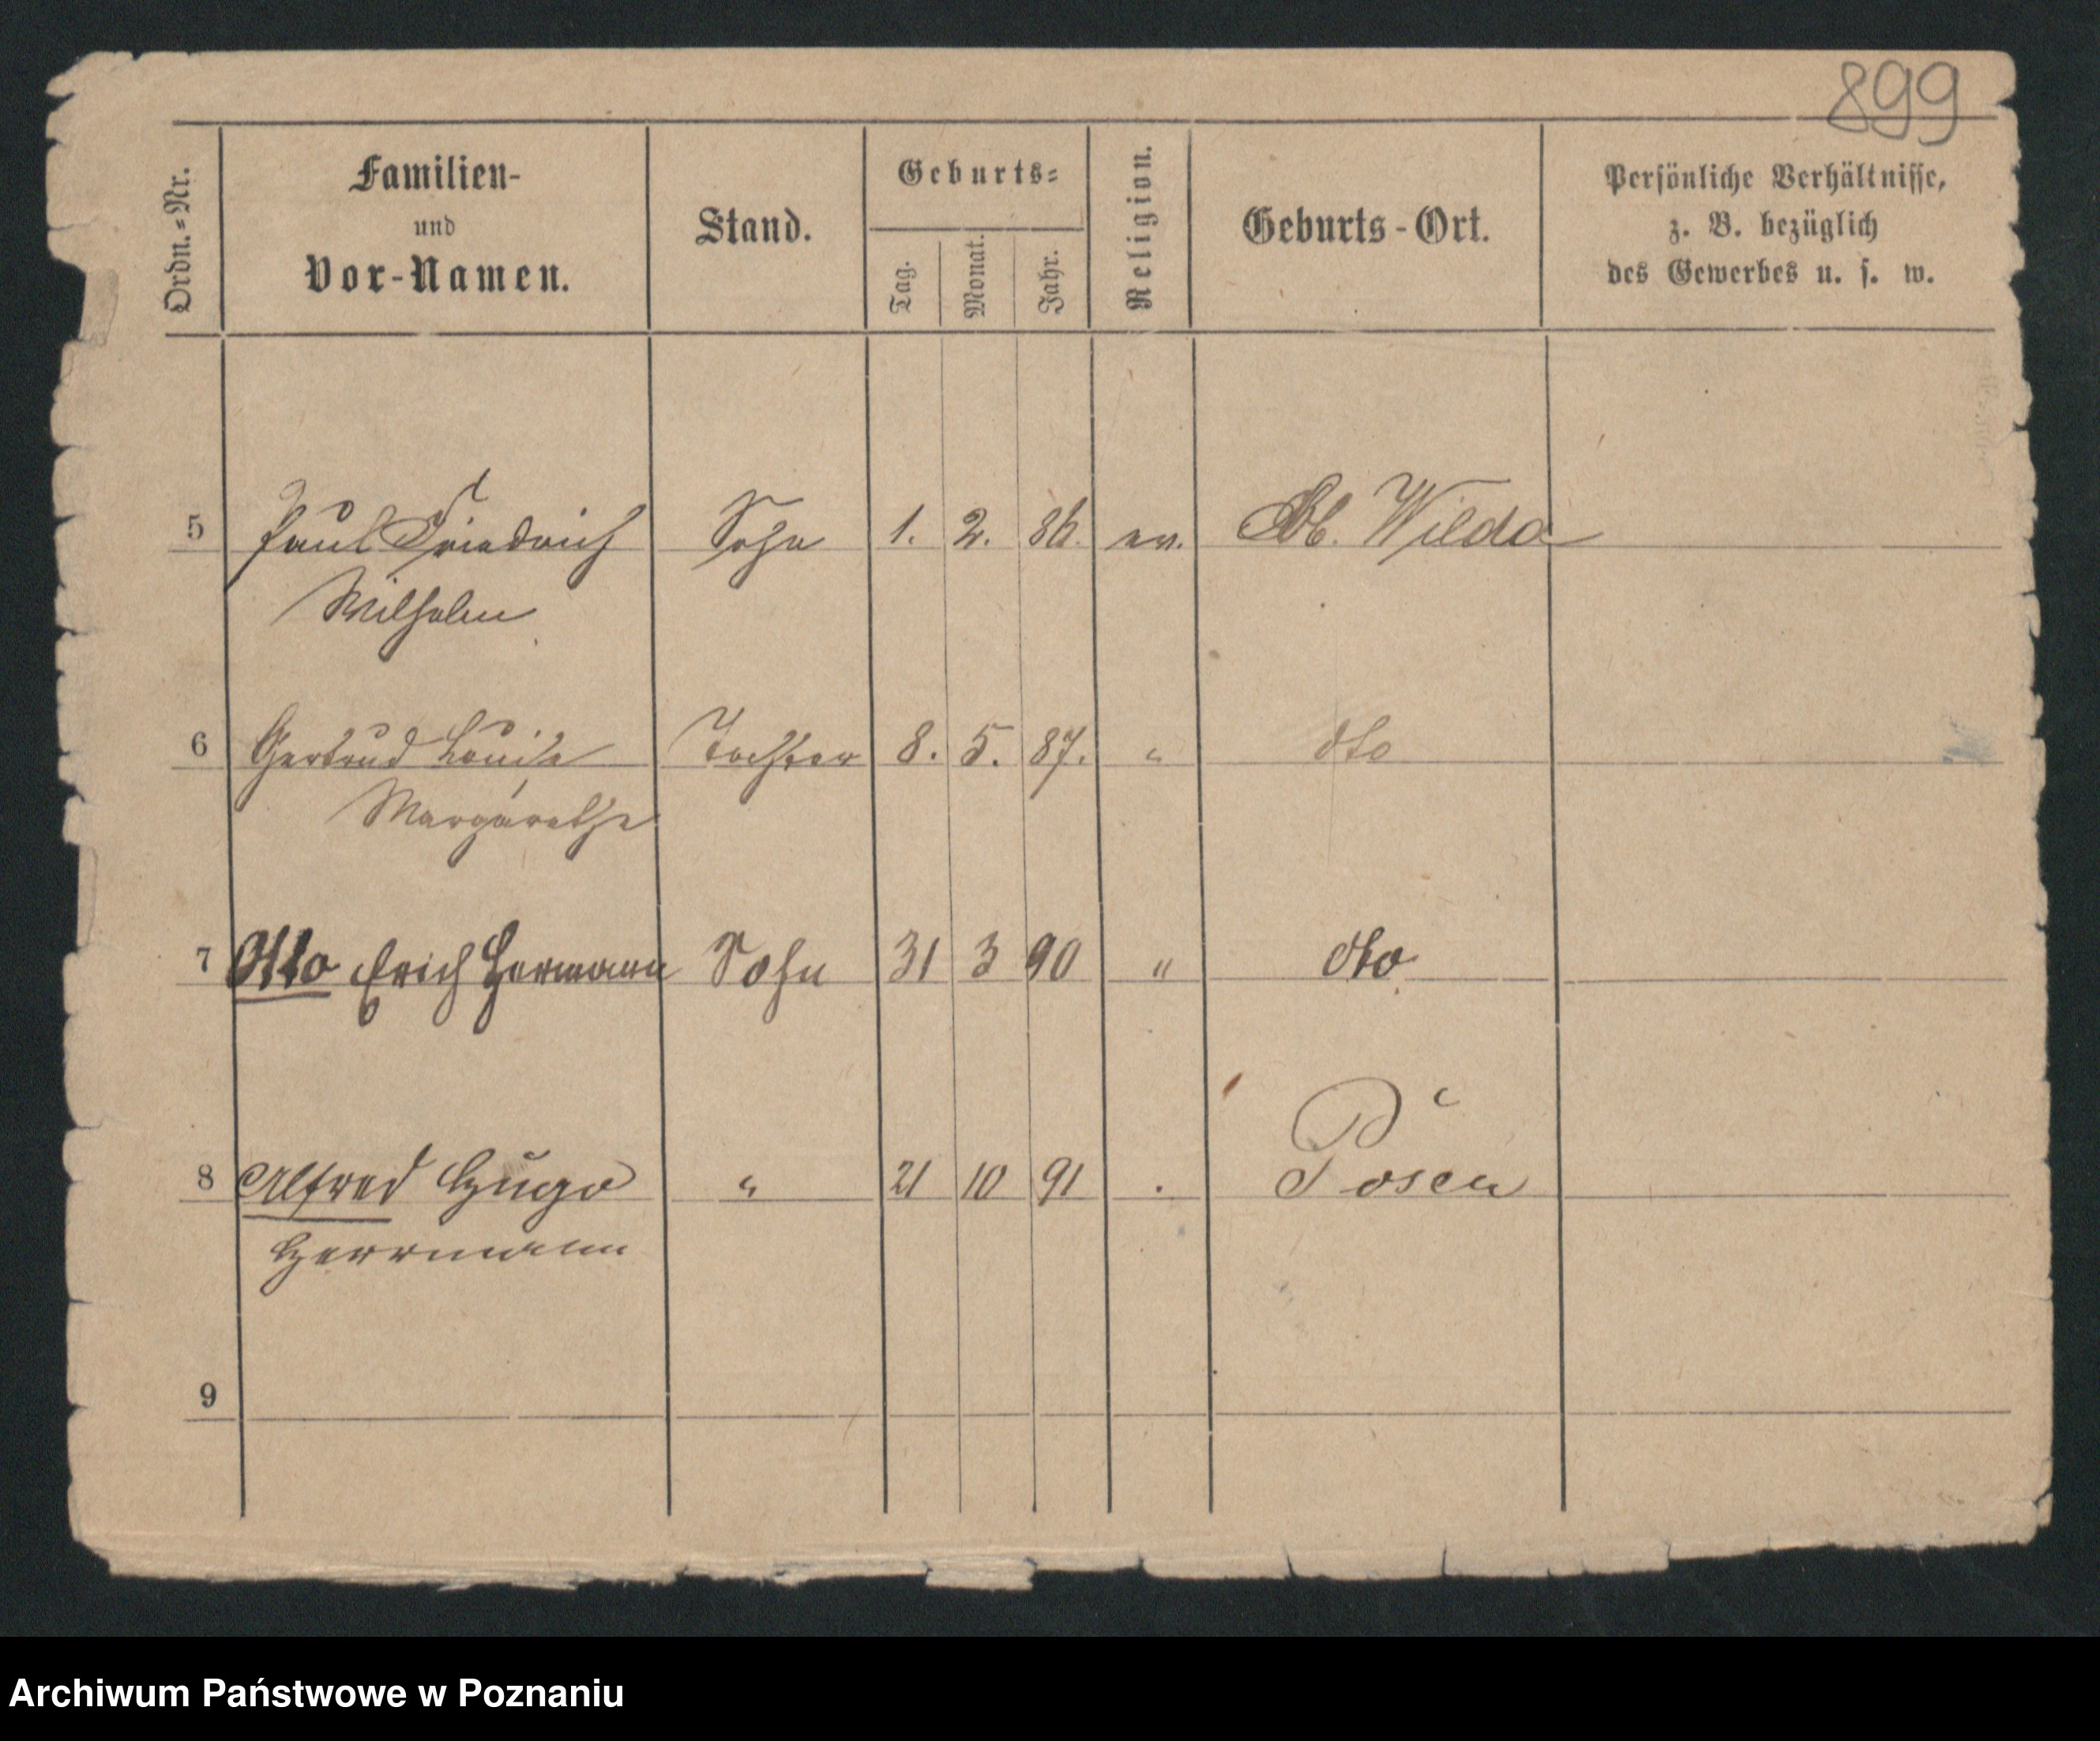 899
Ordn.=Nr.
Familien-
und
Vor-Namen.
Stand.
Geburts=
Tag.
Monat.
Jahr.
Religion.
Geburts-Ort.
Persönliche Verhältnisse,
z. B. bezüglich
des Gewerbes u. s. w.
5 Paul Friedrich Sohn 1. 2. 86. ev. Ob. Wilda
Wilhelm
6 Gertrud Louise Tochter 8. 5. 87. " dto
Margarethe
7 Otto Erich Hermann Sohn 31 3 90 " dto
8 Alfred Hugo " 21 10 91 . Posen
Herrmann
9
Archiwum Państwowe w Poznaniu